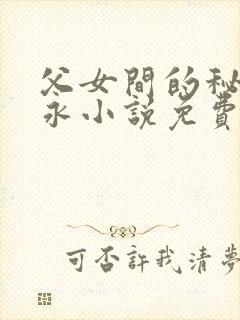 父女間的秘
永小説免費
可否許我清夢